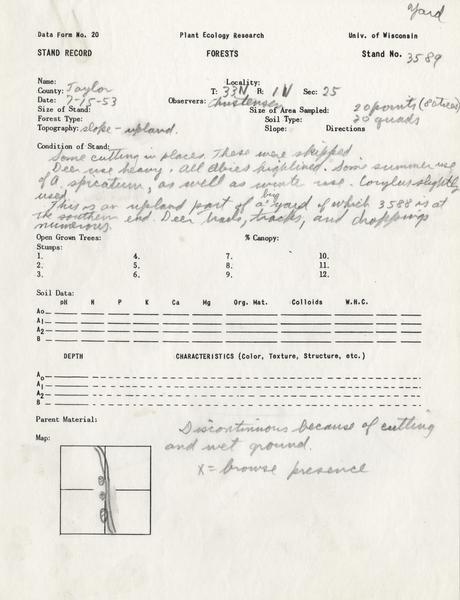 Yard
Data Form No. 20 Plant Ecology Research Univ. of Wisconsin
STAND RECORD FORESTS Stand No. 3589
Name: Locality:
County: Taylor T: 33N R: 1W Sec: 25
Date: 7-15-53 Observers: Christensen
Size of Stand: Size of Area Sampled: 20 points (80 trees)
Forest Type: Soil Type: 20 quads
Topography: slope - upland. Slope: Directions
Condition of Stand:
Some cutting in places. These were skipped
Deer use heavy. All Abies highlined. Some summer use
of A. spicatum, as well as winter use. Corylus slightly
used.
This is an upland part of a big yard of which 3588 is at
the southern end. Deer trails, tracks, and droppings
numerous.
Open Grown Trees: % Canopy:
Stumps:
1. 4. 7. 10.
2. 5. 8. 11.
3. 6. 9. 12.
Soil Data:
pH N P K Ca Mg Org. Mat. Colloids W.H.C.
Ao
A1
A2
B
DEPTH CHARACTERISTICS (Color, Texture, Structure, etc.)
Ao
A1
A2
B
Parent Material:
Map:
Discontinuous because of cutting
and wet ground.
X = browse presence